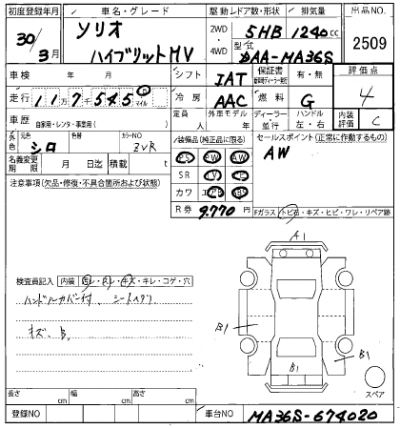 初度登録年月 車名・グレード 駆動 ドア数・形状 排気量 出品NO
30年3月 ソリオ ハイブリットMV 2WD・4WD 5HB 1240cc 2509
型式 DAA-MA36S
車検 年 月 シフト IAT 保証書 有・無 評価点
走行 11万7千545 マイル 冷房 AAC 燃料 G 4
車歴 自家用・レンタ・事業用( ) 定員 人 外車モデル 年 ディーラー 並行 ハンドル 左・右 内装評価 C
外色 元色 シロ 色替 カラーNO ZVR 装備品(純正品に限る) セールスポイント(正常に作動するもの)
名義変更期限 月 日迄 積載 t PS AW PW AW
注意事項(欠品・修復・不具合箇所および状態) SR
カワ エアB
R券 9,770 Fガラス(トビ石・キズ・ヒビ・ワレ・リペア跡)
A1
検査員記入 内装 ヨゴレ・スレ・キズ・キレ・コゲ・穴
ハンドルカバー付、シート
キズ、B B1 B1
B1
長さ cm 幅 cm 高さ cm スペア
登録NO 車台NO MA36S-674020